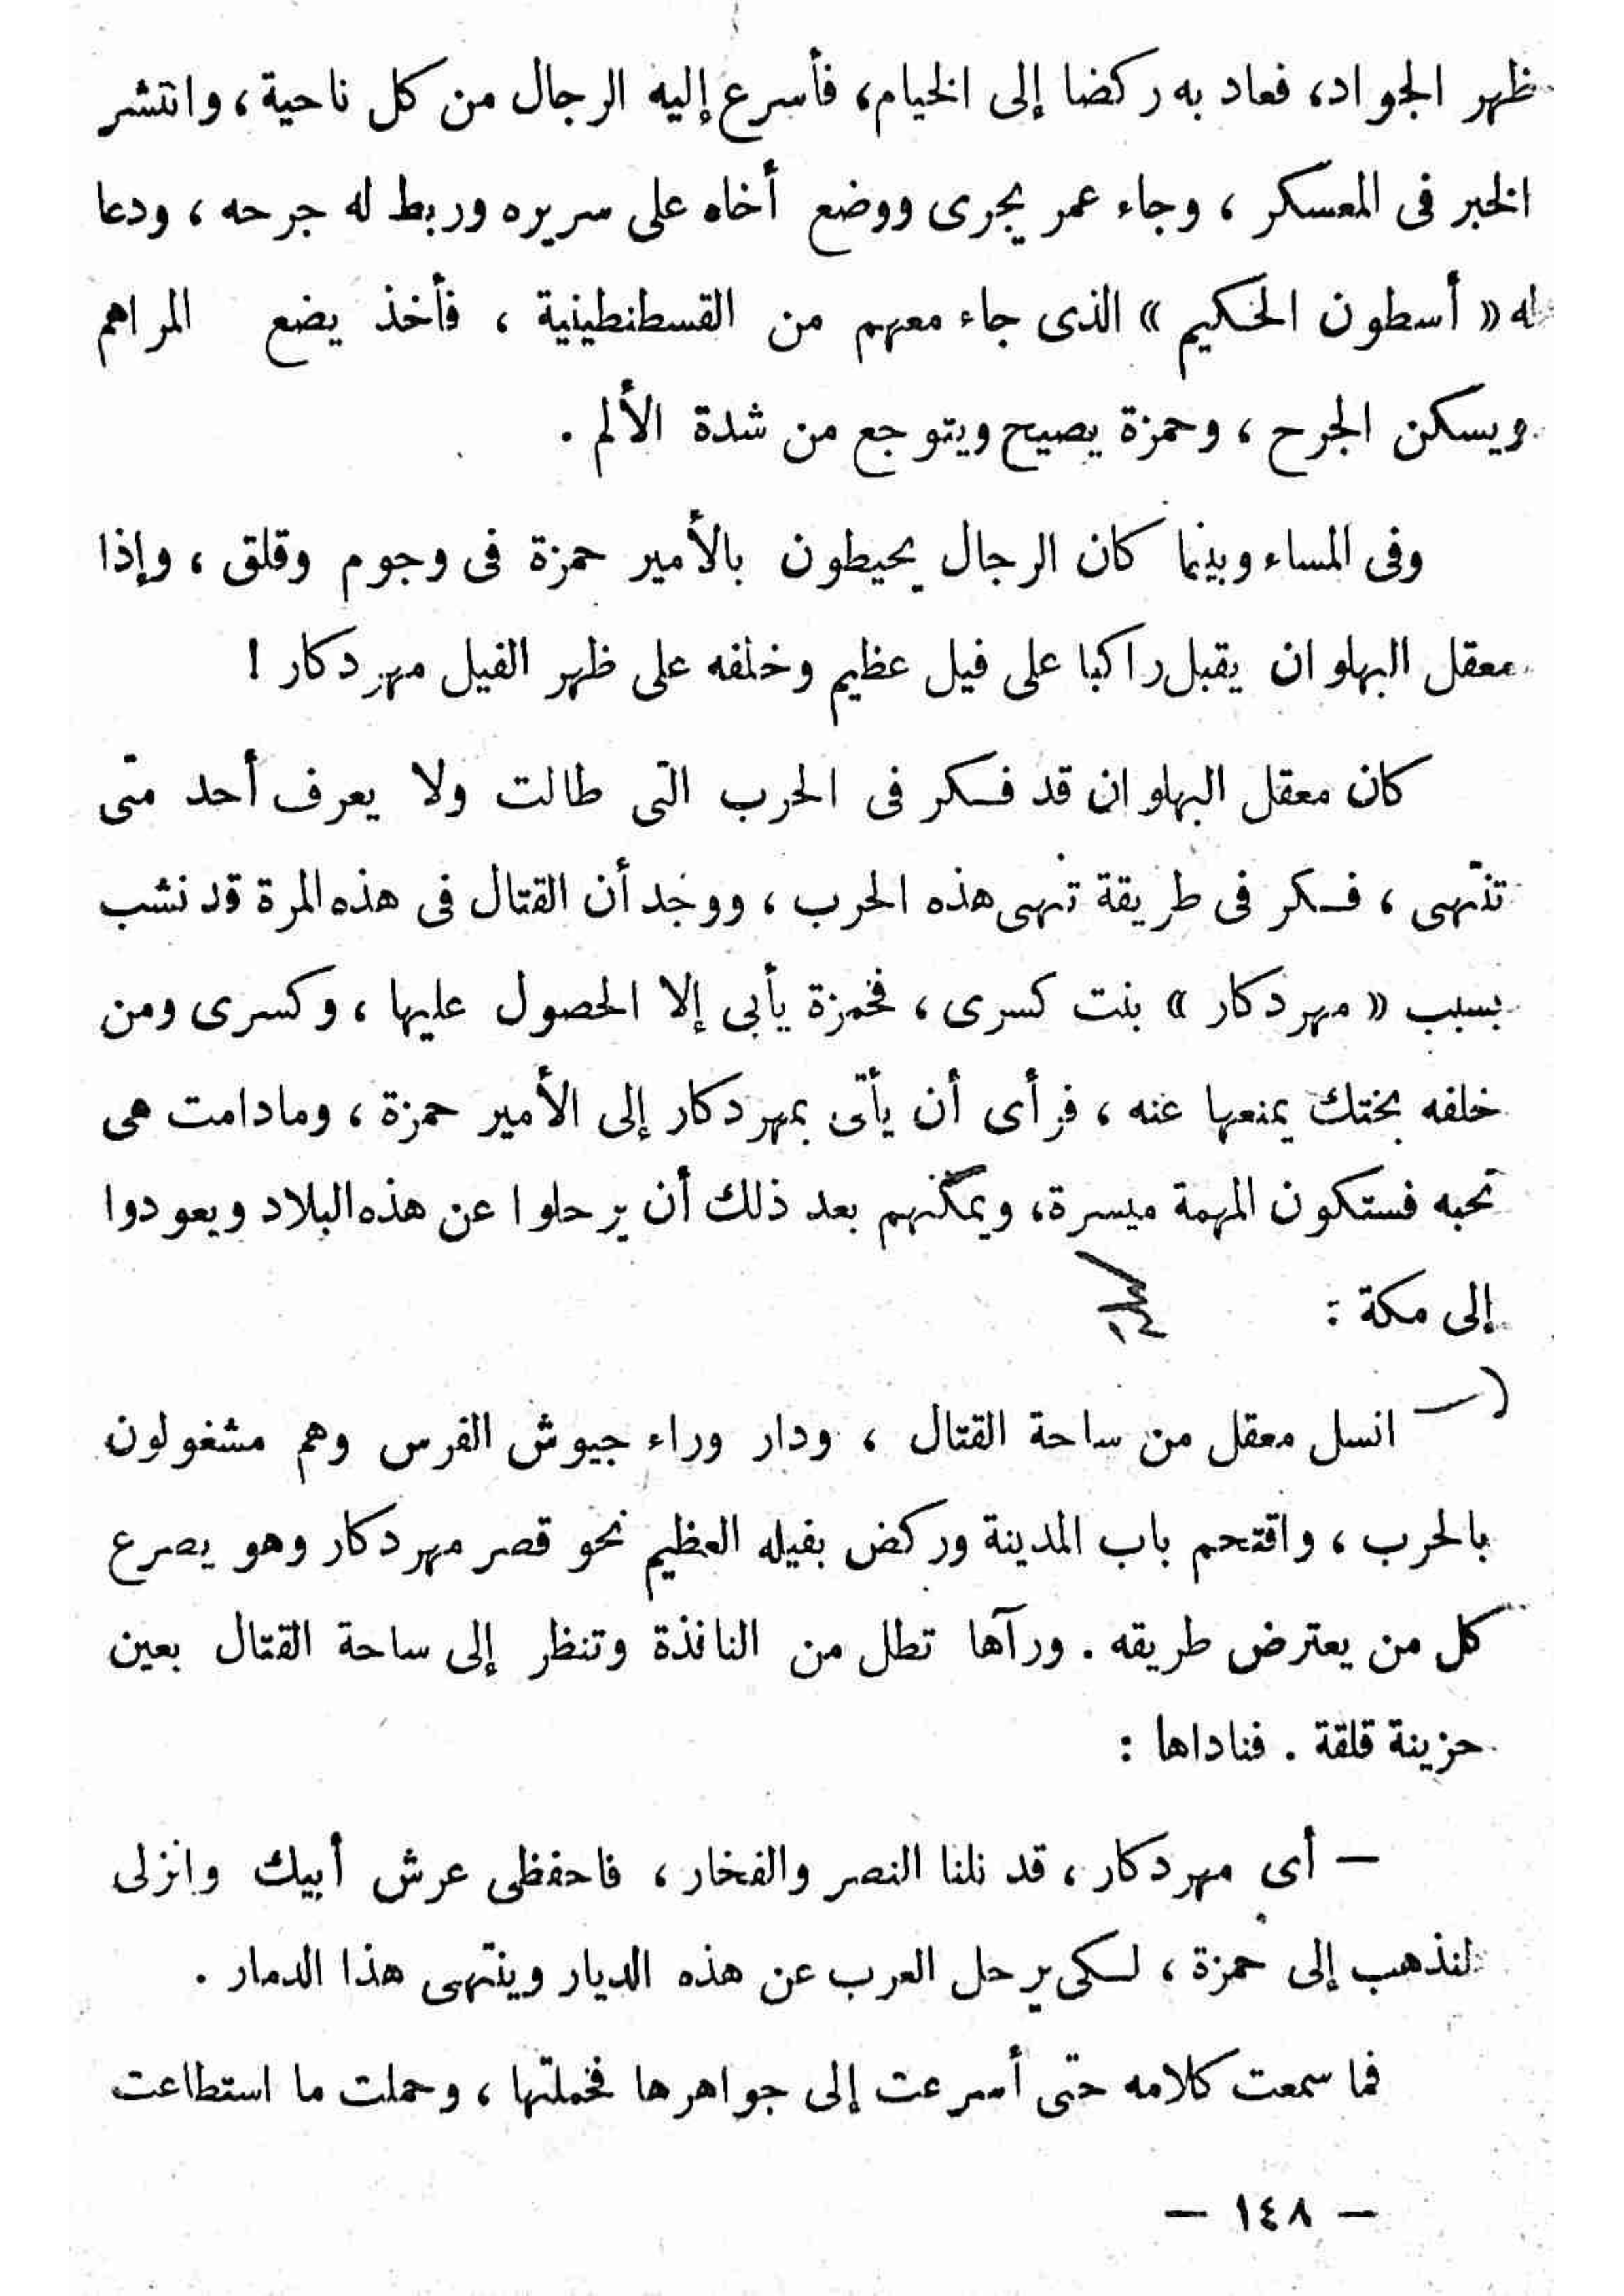 ظهر الجواد، فعاد به ركضا إلى الخيام، فأسرع إليه الرجال من كل ناحية، وانتشر
الخبر فى المعسكر ، وجاء عمر يجرى ووضع أخاه على سريره وربط له جرحه ، ودعا
له « أسطون الحكيم » الذى جاء معهم من القسطنطينية ، فأخذ يضع المراهم
ويسكن الجرح ، وحمزة يصيح ويتوجع من شدة الألم .
وفى المساء وبينما كان الرجال يحيطون بالأمير حمزة فى وجوم وقلق ، وإذا
معقل البهلوان يقبل راكبا على فيل عظيم وخلفه على ظهر الفيل مهردكار !
كان معقل البهلوان قد فكر فى الحرب التى طالت ولا يعرف أحد متى
تنتهى ، فكر فى طريقة تنهى هذه الحرب ، ووجد أن القتال فى هذه المرة قد نشب
بسبب « مهردكار » بنت كسرى ، فحمزة يأبى إلا الحصول عليها ، وكسرى ومن
خلفه بختك يمنعها عنه ، فرأى أن يأتى بمهردكار إلى الأمير حمزة ، ومادامت هى
تحبه فستكون المهمة ميسرة، ويمكنهم بعد ذلك أن يرحلوا عن هذه البلاد ويعودوا
إلى مكة :
انسل معقل من ساحة القتال ، ودار وراء جيوش الفرس وهم مشغولون
بالحرب ، واقتحم باب المدينة وركض بفيله العظيم نحو قصر مهردكار وهو يصرع
كل من يعترض طريقه . ورآها تطل من النافذة وتنظر إلى ساحة القتال بعين
حزينة قلقة . فناداها :
— أى مهردكار ، قد نلنا النصر والفخار ، فاحفظى عرش أبيك وانزلى
لنذهب إلى حمزة ، لكى يرحل العرب عن هذه الديار وينتهى هذا الدمار .
فما سمعت كلامه حتى أسرعت إلى جواهرها فحملتها ، وحملت ما استطاعت
— ١٤٨ —